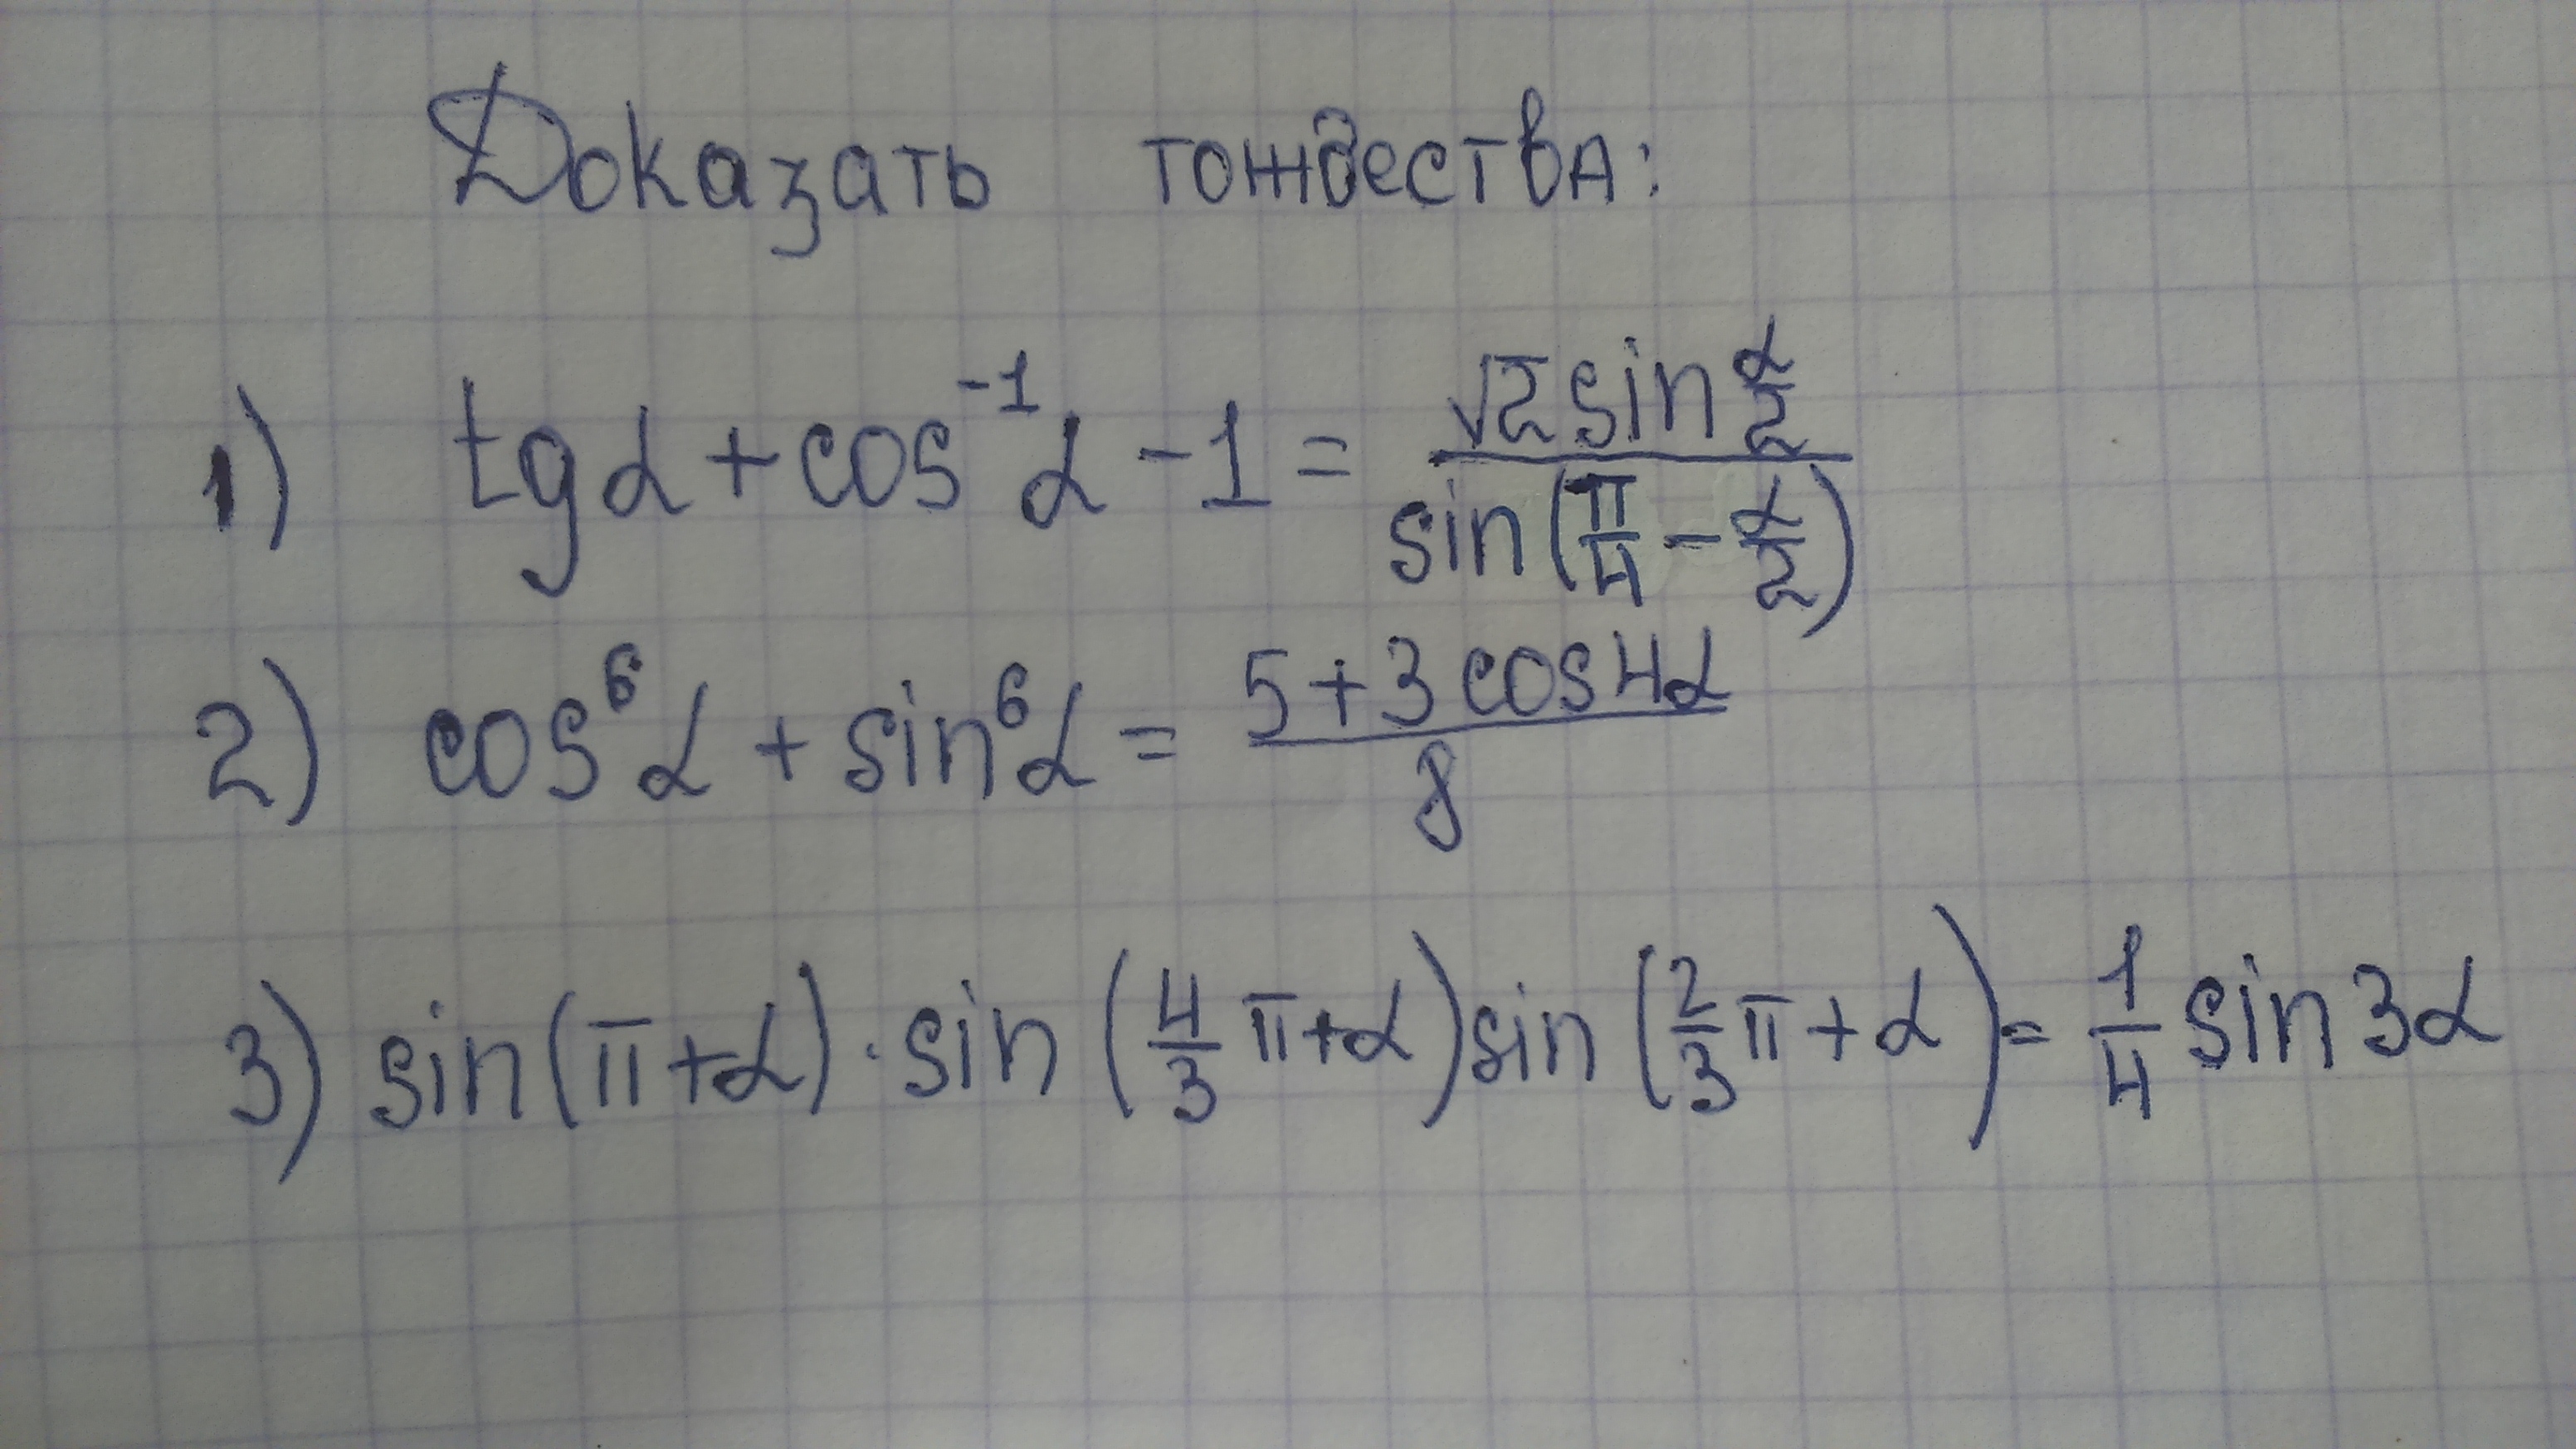 Доказать тождества:
1) tgα + cos⁻¹α - 1 = √2 sin α/2 / sin(π/4 - α/2)
2) cos⁶α + sin⁶α = 5 + 3 cos 4α / 8
3) sin(π + α) · sin(4/3 π + α) sin(2/3 π + α) = 1/4 sin 3α